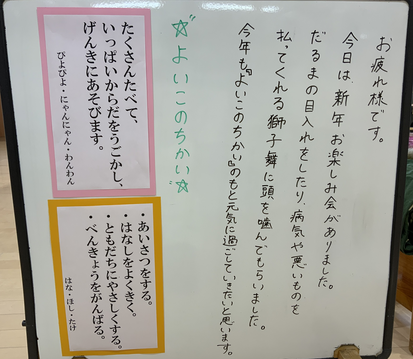 お疲れ様です。
今日は、新年お楽しみ会がありました。
だるまの目入れをしたり、病気や悪いものを
払ってくれる獅子舞に頭を噛んでもらいました。
今年も『よいこのちかい』のもと元気に過ごしていきたいと思います。
☆よいこのちかい☆
たくさんたべて、
いっぱいからだをうごかし、
げんきにあそびます。
ぴよぴよ・にゃんにゃん・わんわん
・あいさつをする。
・はなしをよくきく。
・ともだちにやさしくする。
・べんきょうをがんばる。
はな・ほし・たけ